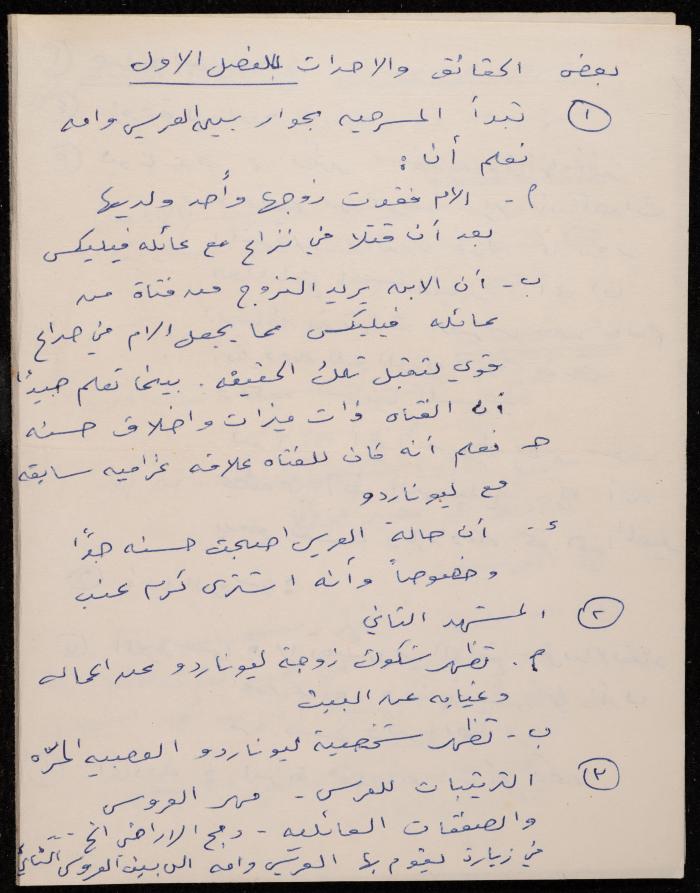 بعض الحقائق والاحداث بالفصل الاول
① تبدأ المسرحيه بحوار بين العريس وامه
نعلم أن :
أ - الام فقدت زوجها وأحد ولديها
بعد أن قتلا في نزاع مع عائله فيليكس
ب - أن الابن يريد التزوج من فتاة من
عائله فيليكس مما يجعل الام في صراع
قوي لتقبل تلك الحقيقه . بينما تعلم جيدًا
أن الفتاه ذات ميزات واخلاق حسنه
حـ نعلم أنه كان للفتاه علاقه غراميه سابقه
مع ليوناردو
ء - أن حالة العريس اصبحت حسنه جدًا
وخصوصاً وأنه اشترى كرم عنب
② المشهد الثاني
أ . تظهر شكوك زوجة ليوناردو عن اعماله
وغيابه عن البيت
ب - تظهر شخصية ليوناردو العصبيه المرّه
③ الترتيبات للعرس - مهر العروس
والصفقات العائليه - دمج الاراضي الخ -
في زيارة يقوم بها العريس وامه الى بيت العروس